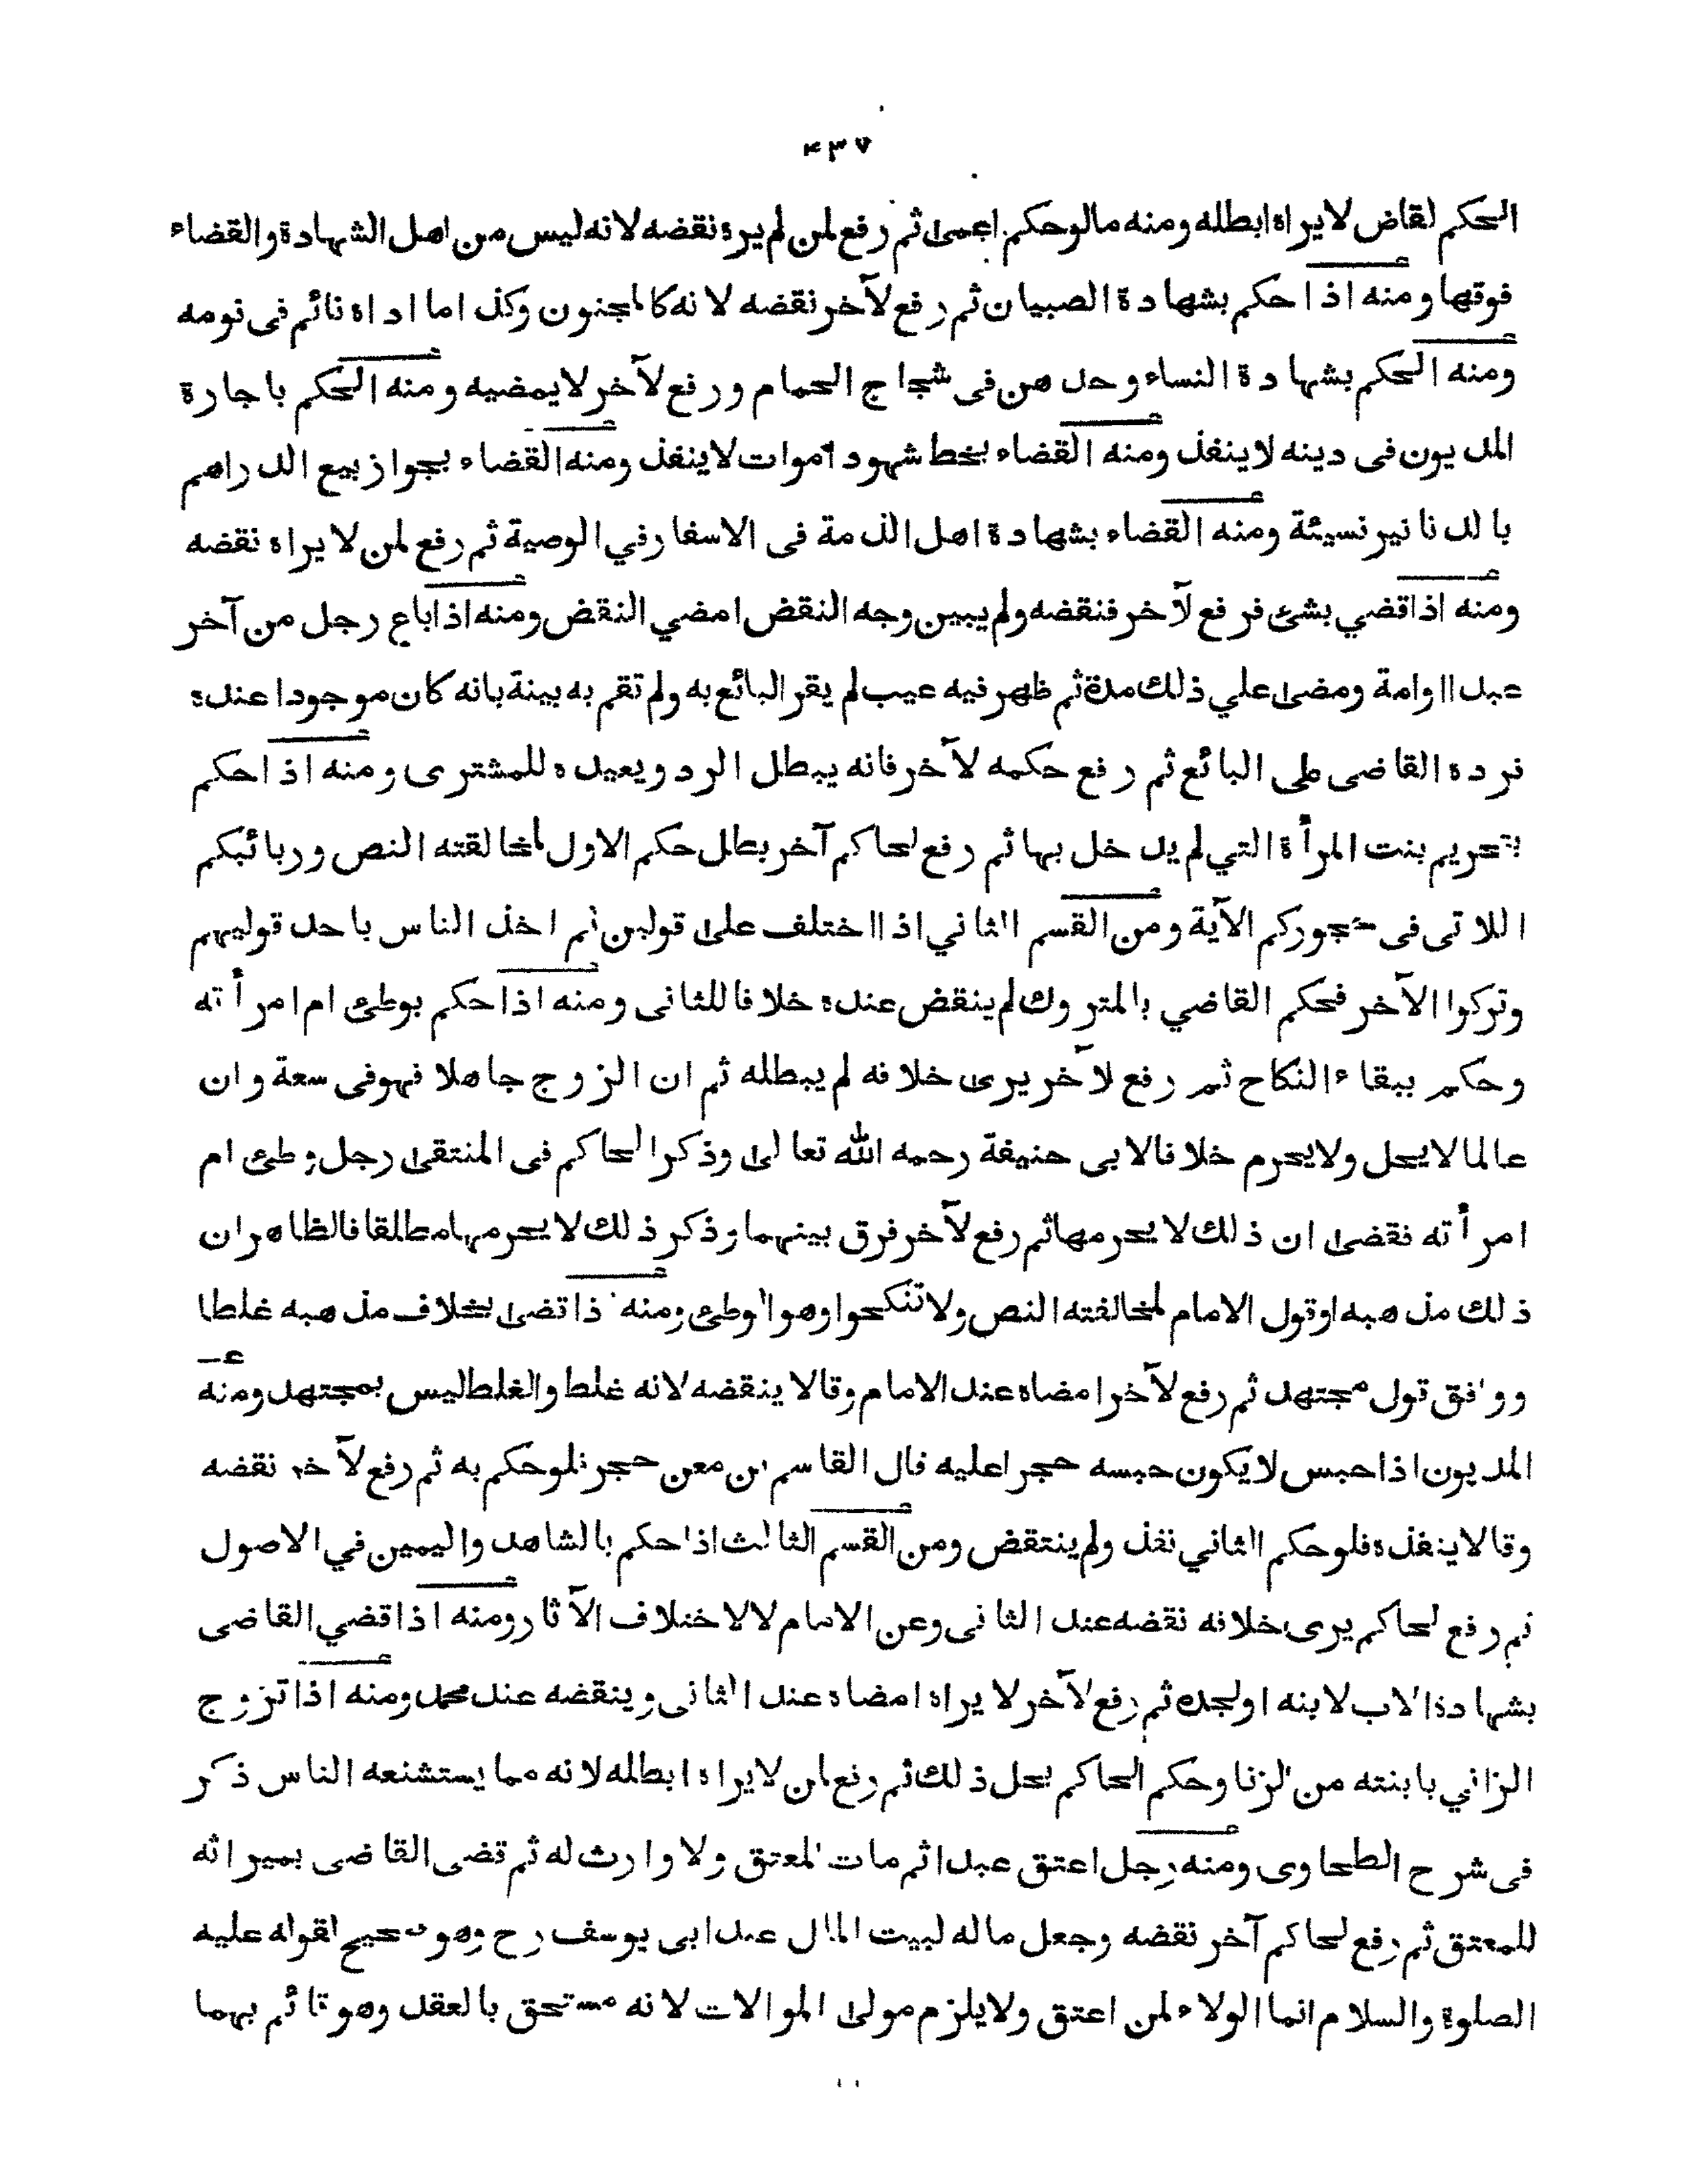 ٤٣٧
الحكم لقاض لا يراه ابطله ومنه ما لو حكم اعمى ثم رفع لمن لم يره نقضه لانه ليس من اهل الشهادة والقضاء
فوقها ومنه اذا حكم بشهادة الصبيان ثم رفع لآخر نقضه لانه كالمجنون وكذا ما اداه نائم فى نومه
ومنه الحكم بشهادة النساء وحدهن فى شجاج الحمام ورفع لآخر لا يمضيه ومنه الحكم باجارة
المديون فى دينه لا ينفذ ومنه القضاء بخط شهود اموات لا ينفذ ومنه القضاء بجواز بيع الدراهم
بالدنانير نسيئة ومنه القضاء بشهادة اهل الذمة فى الاسفار في الوصية ثم رفع لمن لا يراه نقضه
ومنه اذا قضي بشئ فرفع لآخر فنقضه ولم يبين وجه النقض امضي النقض ومنه اذا باع رجل من آخر
عبدا او امة ومضى علي ذلك مدة ثم ظهر فيه عيب لم يقر البائع به ولم تقم به بينة بانه كان موجودا عنده
فرده القاضى على البائع ثم رفع حكمه لآخر فانه يبطل الرد ويعيده للمشترى ومنه اذا حكم
بتحريم بنت المرأة التي لم يدخل بها ثم رفع لحاكم آخر بطل حكم الاول لمخالفته النص وربائبكم
اللاتى فى حجوركم الآية ومن القسم الثاني اذا اختلف على قولين ثم اخذ الناس باحد قوليهم
وتركوا الآخر فحكم القاضي بالمتروك لم ينقض عنده خلافا للثانى ومنه اذا حكم بوطئ ام امرأته
وحكم ببقاء النكاح ثم رفع لآخر يرى خلافه لم يبطله ثم ان الزوج جاهلا فهو فى سعة وان
عالما لا يحل ولا يحرم خلافا لابى حنيفة رحمه الله تعالى وذكر الحاكم فى المنتقى رجل وطئ ام
امرأته نقضى ان ذلك لا يحرمها ثم رفع لآخر فرق بينهما وذكر ذلك لا يحرمها مطلقا فالظاهر ان
ذلك مذهبه او قول الامام لمخالفته النص ولا تنكحوا وهو الوطئ ومنه اذا قضى بخلاف مذهبه غلطا
ووافق قول مجتهد ثم رفع لآخر امضاه عند الامام وقالا ينقضه لانه غلط والغلط ليس بمجتهد ومنه
المديون اذا حبس لا يكون حبسه حجرا عليه قال القاسم بن معن حجر فلو حكم به ثم رفع لآخر نقضه
وقالا ينفذه فلو حكم الثاني نفذ ولم ينتقض ومن القسم الثالث اذا حكم بالشاهد واليمين في الاصول
ثم رفع لحاكم يرى خلافه نقضه عند الثانى وعن الامام لا لاختلاف الآثار ومنه اذا قضي القاضى
بشهادة الاب لابنه او لجده ثم رفع لآخر لا يراه امضاه عند الثانى وينقضه عند محمد ومنه اذا تزوج
الزاني بابنته من الزنا وحكم الحاكم بحل ذلك ثم رفع لمن لا يراه ابطله لانه مما يستشنعه الناس ذكر
فى شرح الطحاوى ومنه رجل اعتق عبدا ثم مات المعتق ولا وارث له ثم قضى القاضى بميراثه
للمعتق ثم رفع لحاكم آخر نقضه وجعل ماله لبيت المال عند ابى يوسف رح وهو صحيح لقوله عليه
الصلوة والسلام انما الولاء لمن اعتق ولا يلزم مولى الموالات لانه مستحق بالعقد وهو قائم بهما